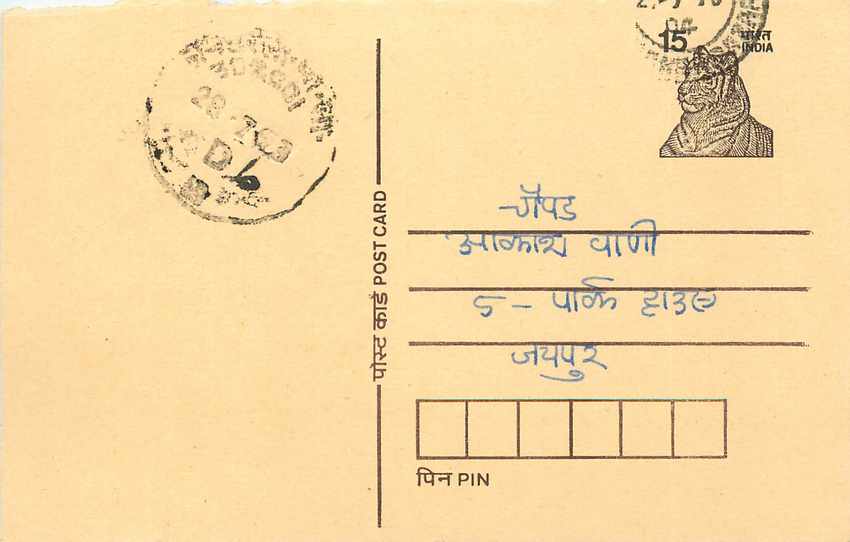 15 भारत
INDIA
पोस्ट कार्ड POST CARD
चौपड
आकाश वाणी
5 - पार्क हाउस
जयपुर
पिन PIN